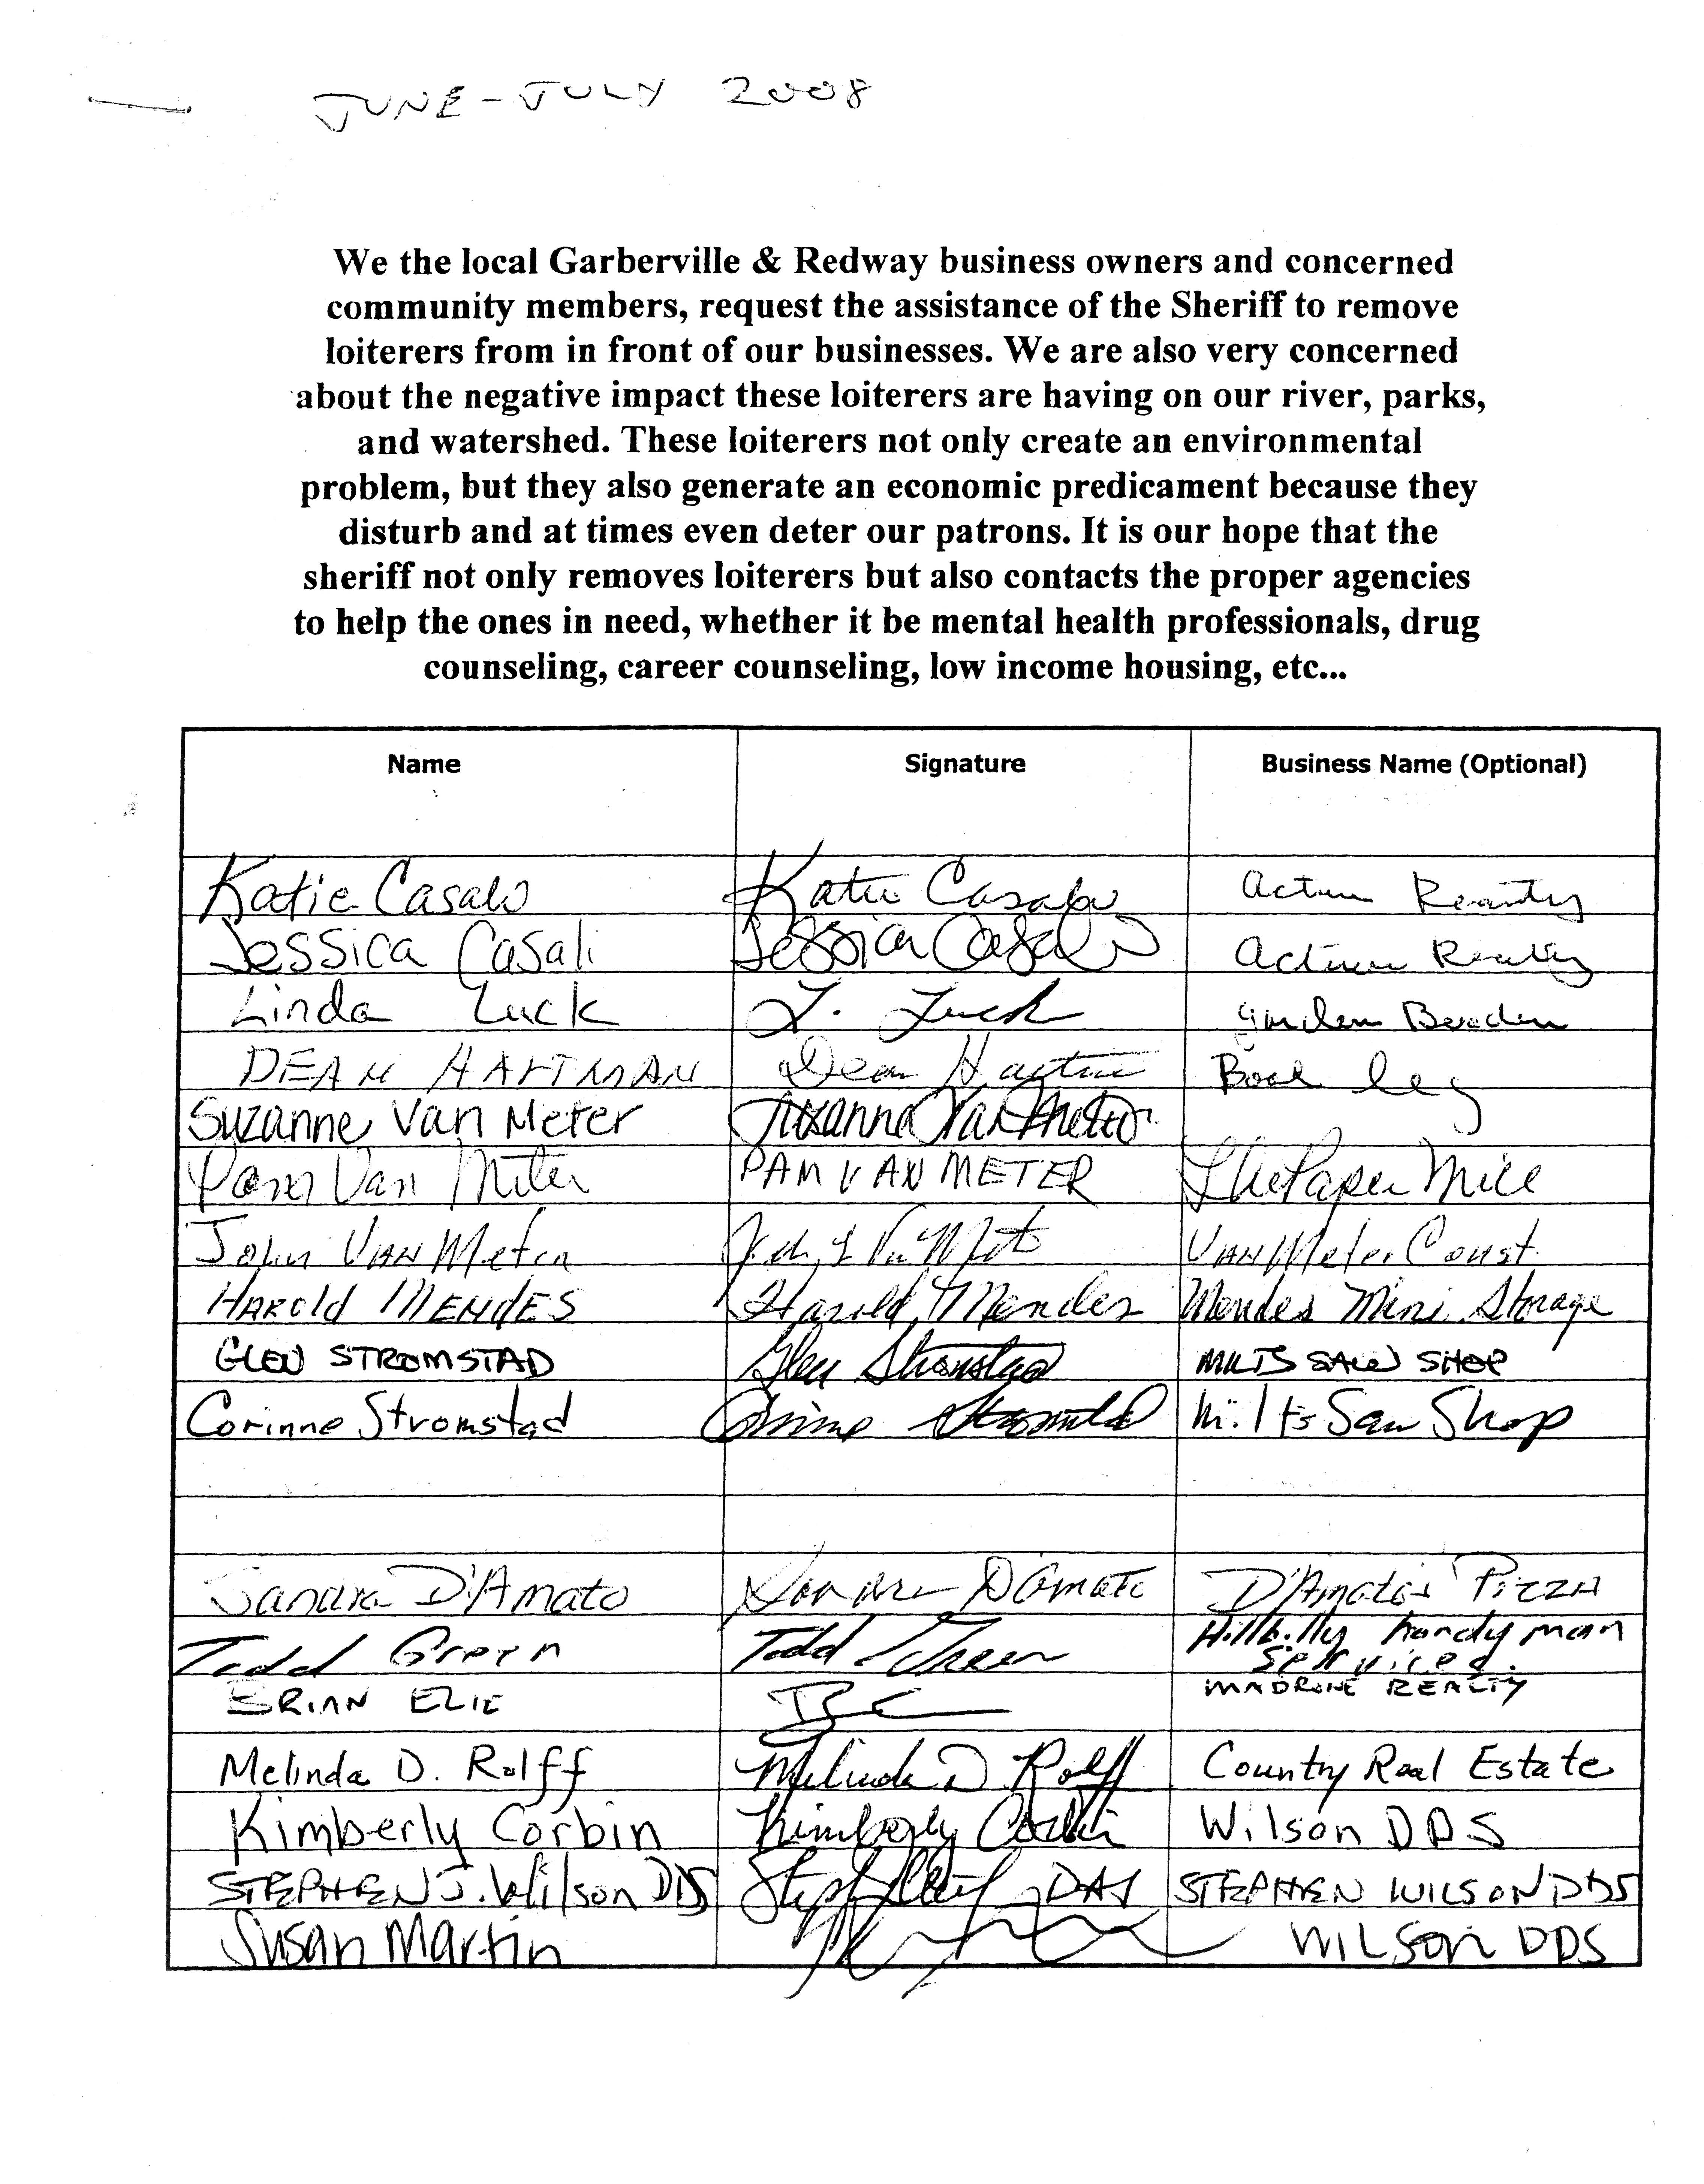 JUNE - JULY 2008
We the local Garberville & Redway business owners and concerned
community members, request the assistance of the Sheriff to remove
loiterers from in front of our businesses. We are also very concerned
about the negative impact these loiterers are having on our river, parks,
and watershed. These loiterers not only create an environmental
problem, but they also generate an economic predicament because they
disturb and at times even deter our patrons. It is our hope that the
sheriff not only removes loiterers but also contacts the proper agencies
to help the ones in need, whether it be mental health professionals, drug
counseling, career counseling, low income housing, etc...
Name Signature Business Name (Optional)
Katie Casali Katie Casali Action Realty
Jessica Casali Jessica Casali Action Realty
Linda Luck L. Luck Garden
DEAN HARTMAN Dean Boot leg
Suzanne Van Meter Suzanne Van Meter
Pam Van Meter PAM VAN METER The Paper Mill
John VAN Meter VAN Meter Const.
HAROld MENdES Harold Mendes Mendes Mini Storage
GLEN STROMSTAD Glen Stromstad MILTS SAW SHOP
Corinne Stromstad Corinne Stromstad Milts Saw Shop
Sandra D'Amato Sandra D'Amato D'Amato's Pizza
Todd Green Todd Green Hillbilly handyman
Serviced.
BRIAN ELIE MADRONE REALTY
Melinda D. Rolff Melinda D. Rolff Country Real Estate
Kimberly Corbin Kimberly Corbin Wilson DDS
STEPHEN J. Wilson DDS DDS STEPHEN WILSON DDS
Susan Martin WILSON DDS